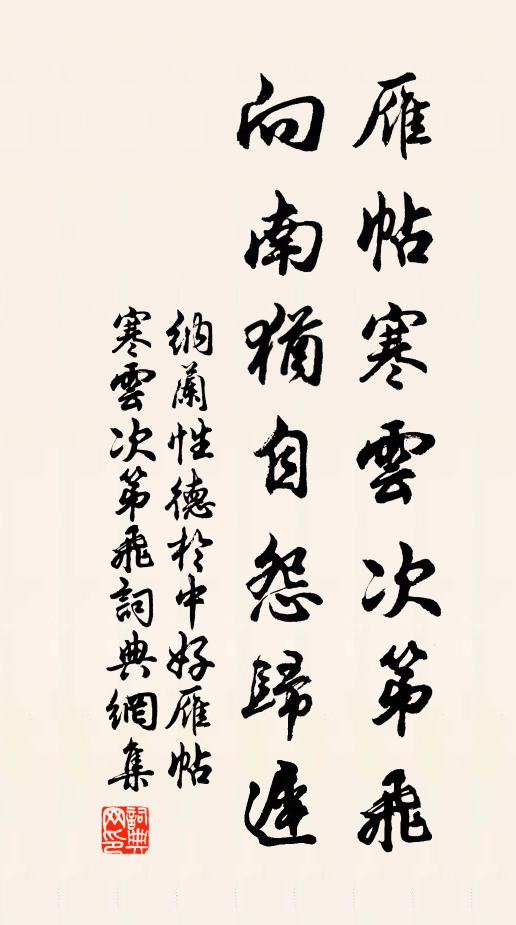 雁帖寒雲次第飛
向南猶自怨歸遲
納蘭性德於中好雁帖
寒雲次第飛詞典網集
詞典
网印